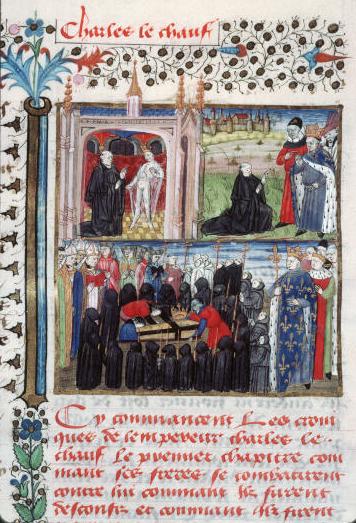 Charles le chauf
Cy commancent Les croni
ques de lempereur charles le
chauf. Le premier chapitre com
mant ses freres se combatirent
contre lui commant ilz furent
desconfis et commant ilz furent